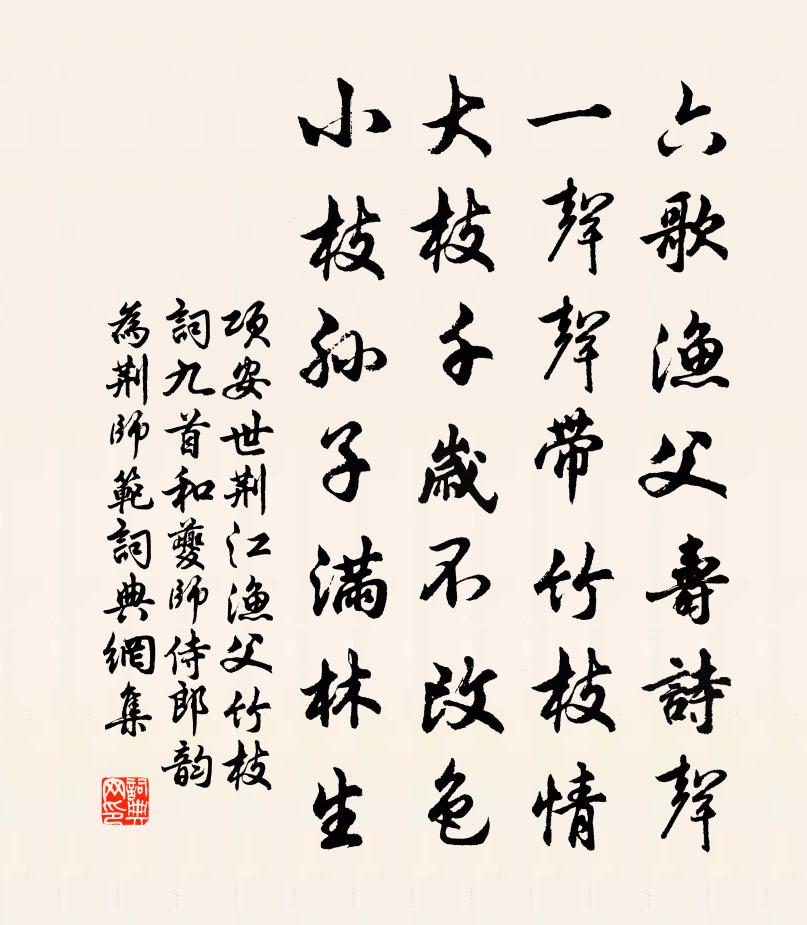 六歌漁父壽詩聲
一聲聲帶竹枝情
大枝千歲不改色
小枝孫子滿林生
項安世荆江漁父竹枝
詞九首和夔師侍郎韵
為荆師範詞典網集
詞典網印